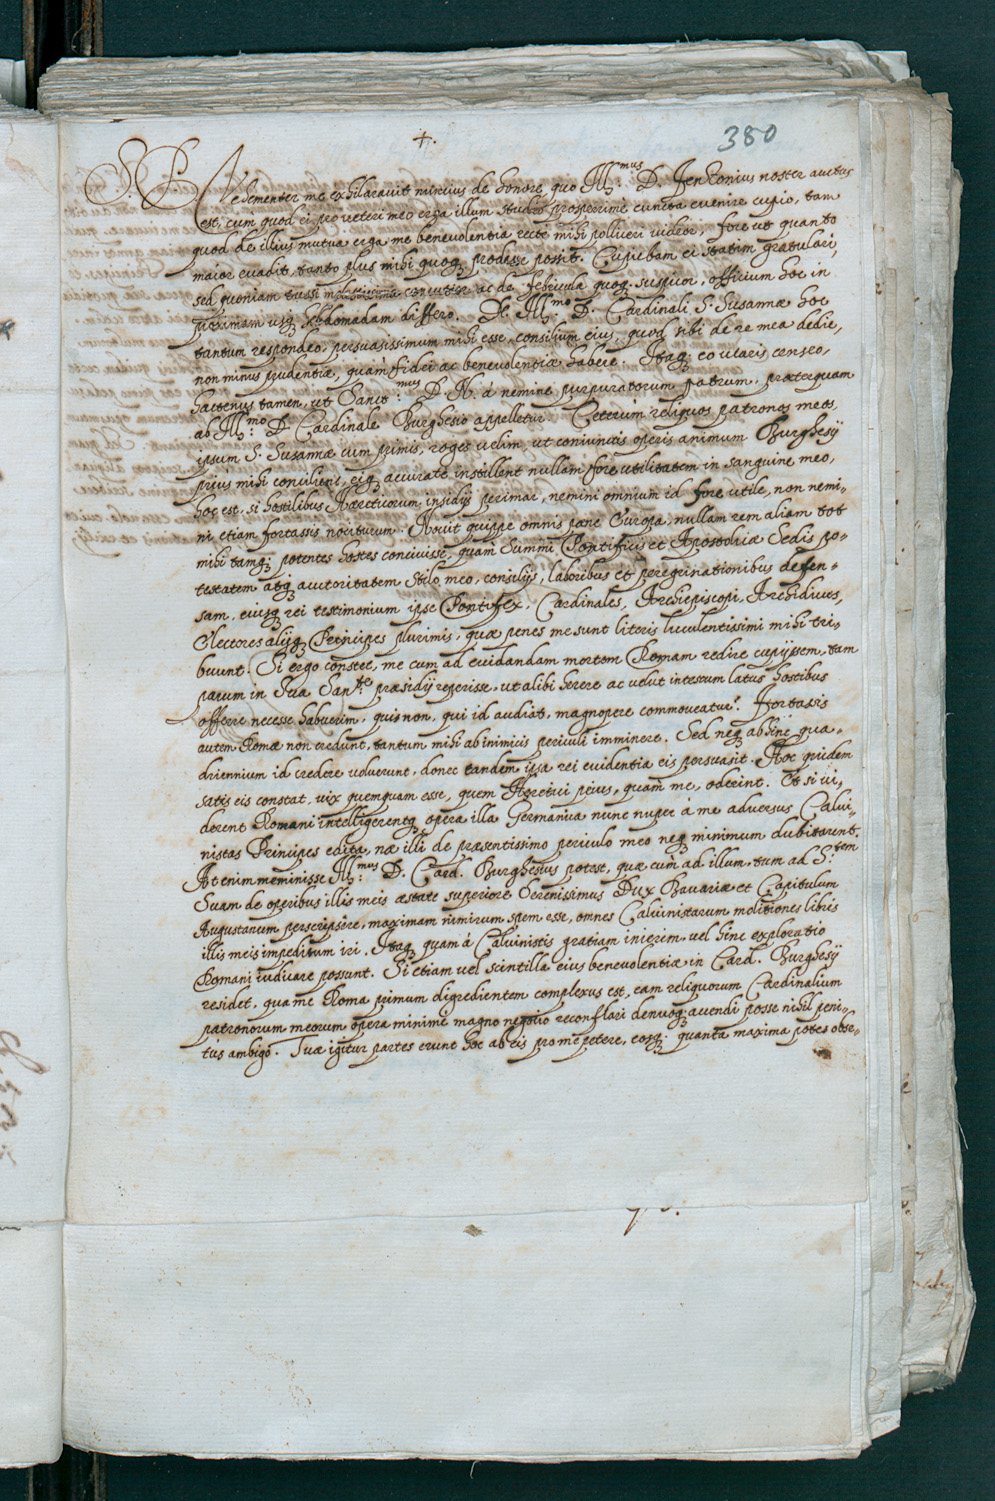 +.
380
S. P. Vehementer me exhilaravit nuncius de honore, quo Ill.mus D. Jentonius noster auctus
est, cum quod ei pro veteri meo erga illum studio prosperrime cuncta evenire cupio, tam
quod de illius mutua erga me benevolentia recte mihi polliceri videor, fore ut quanto
maior evadit, tanto plus mihi quoq; prodesse possit. Cupiebam ei statim gratulari,
sed quoniam tussi concutior ac de febricula quoq; suspicor, officium hoc in
proximam usq; hebdomadam differo. Ill.mo D. Cardinali S. Susannæ hoc
tantum respondeo, persuasissimum mihi esse, consilium eius, quod tibi de re mea dedit,
non minus prudentiæ, quàm fidei ac benevolentiæ habere. Itaq; eo utaris censeo,
hactenus tamen, ut Sanct.mus D. N. à nemine purpuratorum patrum, præterquam
ab Ill.mo D. Cardinale Burghesio appelletur. Ceterùm reliquos patronos meos,
ipsum S. Susannæ cum primis, roges velim, ut coniunctis operis animum Burghesij
prius mihi concilient, eiq; accurate instillent nullam fore utilitatem in sanguine meo,
hoc est, si hostilibus Hæreticorum insidijs perimar, nemini omnium id fore utile, non nemi-
ni etiam fortassis nociturum. Novit quippe omnis pæne Europa, nullam rem aliam tot
mihi tamq; potentes hostes concivisse, quàm Summi Pontificis et Apostolicæ Sedis po-
testatem atq; auctoritatem stilo meo, consilijs, laboribus et peregrinationibus defen-
sam, eiusq; rei testimonium ipse Pontifex, Cardinales, Archiepiscopi, Archiduces,
Electores alijq; Principes plurimis, quæ penes me sunt literis luculentissimi mihi tri-
buunt. Si ergo constet, me cum ad evitandam mortem Romam redire cupijssem, tam
parum in Sua Sanc.te præsidij reperisse, ut alibi hærere ac velut intectum latus hostibus
offerre necesse habuerim, quis non, qui id audiat, magnopere commoveatur? Fortassis
autem Romæ non credunt, tantum mihi ab inimicis periculi imminere. Sed neq; abhinc qua-
driennium id credere voluerunt, donec tandem ipsa rei evidentia eis persuasit. Hoc quidem
satis eis constat, vix quemquam esse, quem Hæretici peius, quàm me, oderint. Et si vi-
derent Romani intelligerentq; opera illa Germanica nunc nuper à me adversus Calvi-
nistas Principes edita, næ illi de præsentissimo periculo meo neq; minimum dubitarent.
At enim meminisse Ill.mus D. Card. Burghesius potest, quæ cùm ad illum, tum ad S.tem
Suam de operibus illis meis æstate superiore Serenissimus Dux Bavariæ et Capitulum
Augustanum perscripsere, maximam nimirum spem esse, omnes Calvinistarum molitiones libris
illis meis impeditum iri. Itaq; quam à Calvinistis gratiam inierim, vel hinc exploratio
Romani iudicare possunt. Si etiam vel scintilla eius benevolentiæ in Card. Burghesij
residet, qua me Roma primum digredientem complexus est, eam reliquorum Cardinalium
patronorum meorum opera minimè magno negotio reconflari denuoq; accendi posse nihil peni-
tùs ambigo. Tuæ igitur partes erunt hoc ab eis pro me petere, eosq; quanta maxima potes obse-